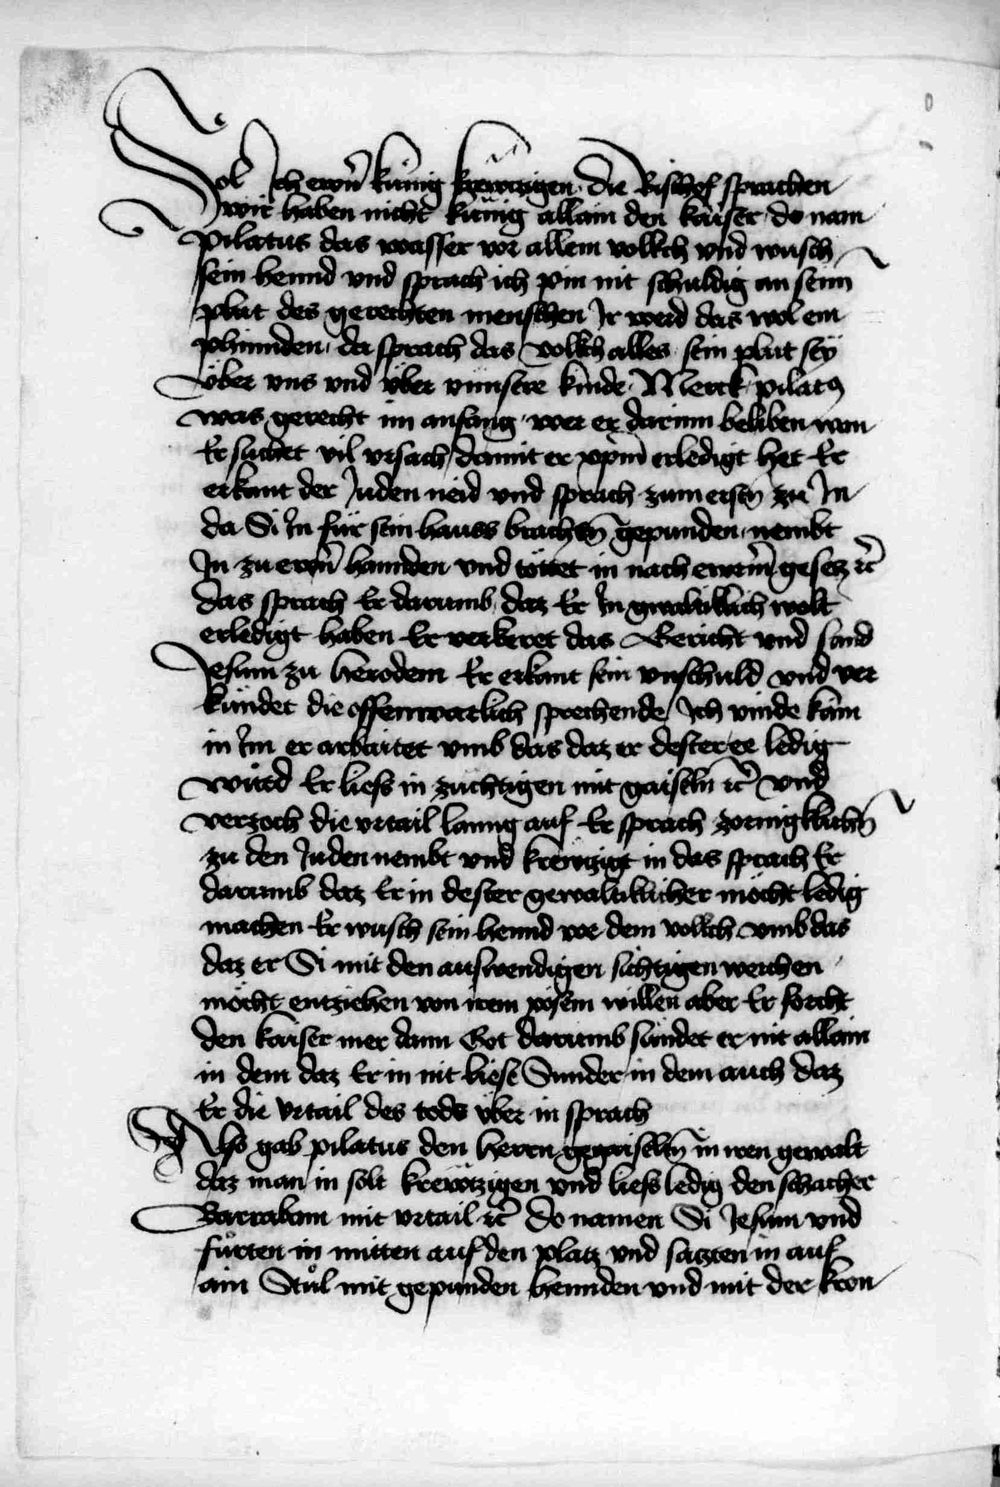 Sol Ich ewrn kunig krewtzigen. die Bischof sprachen
wir haben nicht kunig allain den kaiser. do nam
pilatus das wasser vor allem volkch vnd wusch
sein hennd vnd sprach ich pin nit schuldig an seim
plut des gerechten menschen Ir werd das wol em
phinnden. da sprach das volkch alles sein plut sey
vber vns vnd vber vnnsere kinde. Merck pilatus
was gerecht im anfang. wer er darinn beliben wan
Er suchet vil vrsach damit er xpm erledigt het Er
erkant der Juden neid vnd sprach zum ersten zu In
da Si In für sein hauss brachten gepunden. nembt
In zu ewrn hannden vnd töttet in nach ewrm gesetz etc
das sprach Er darumb. daz Er In gwaltiklich wolt
erledigt haben Er verkeret das Gericht vnd sand
Jesum zu herodem Er erkant sein vnschuld vnd ver
kündet die offenwarlich sprechende Ich vinde kain
in Im er arbaitet vmb das daz er dester ee ledig
würd Er liess in zuchtigen mit gaiseln etc vnd
verzoch die vrtail lanng auf Er sprach zornigklichen
zu den Juden nembt vnd krewtzigt in das sprach Er
darumb daz Er in dester gewaltiklicher möcht ledig
machen Er wusch sein hennd vor dem volkch vmb das
daz er Si mit den auswendigen sichtigen werchen
möcht entziehen von irem pösem willen aber Er forcht
den kaiser mer dann Got darumb sundet er nit allain
in dem daz Er in nit liess Sunder in dem auch daz
Er die vrtail des tods vber in sprach
Also gab pilatus den herrn gegaiselten in iren gewalt
daz man in solt krewtzigen vnd liess ledig den schacher
Barrabam mit vrtail etc do namen Si Jesum vnd
fürten in mitten auf den platz vnd satzten in auf
ain Stůl mit gepunden hennden vnd mit der kron